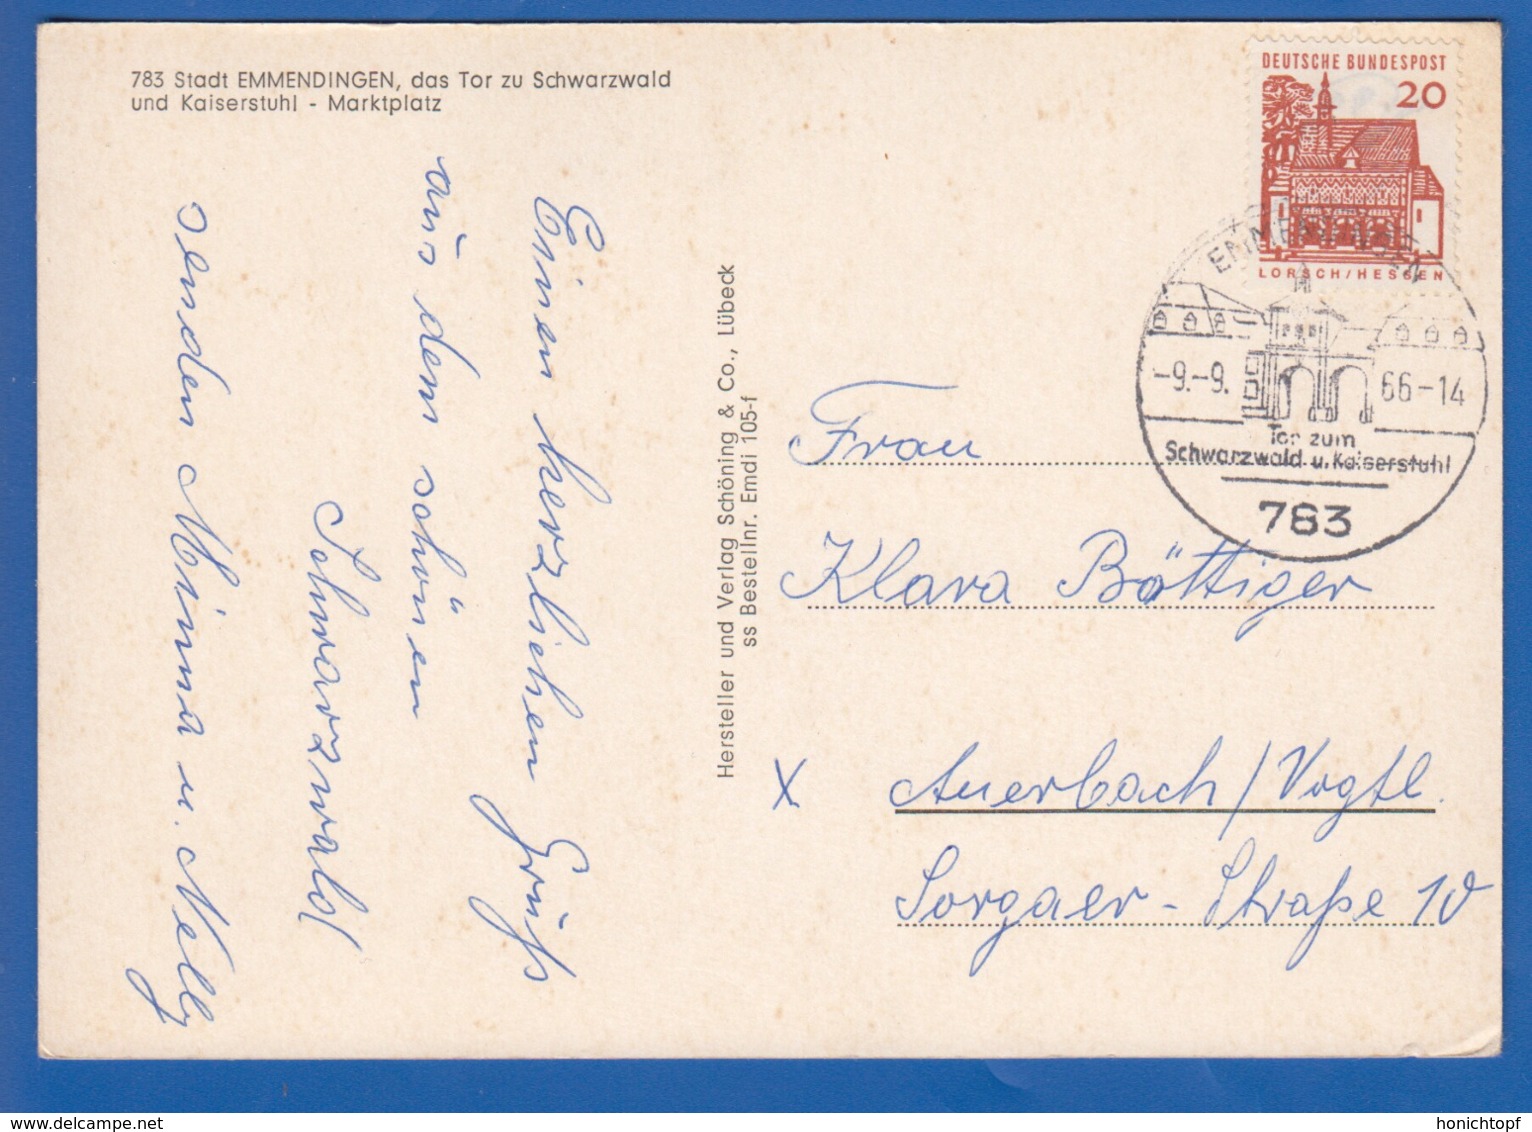 783 Stadt EMMENDINGEN, das Tor zu Schwarzwald
und Kaiserstuhl - Marktplatz
Einen herzlichen Gruß
aus dem schönen
Schwarzwald
senden Minna u. Nelly
Hersteller und Verlag Schöning & Co., Lübeck
ss Bestellnr. Emdi 105-f
DEUTSCHE BUNDESPOST
20
LORSCH/HESSEN
EMMENDINGEN
-9.-9. 66-14
Tor zum
Schwarzwald u. Kaiserstuhl
783
Frau
Klara Böttiger
X Auerbach/Vogtl.
Sorgaer-Straße 10
delcampe.net
honichtopf